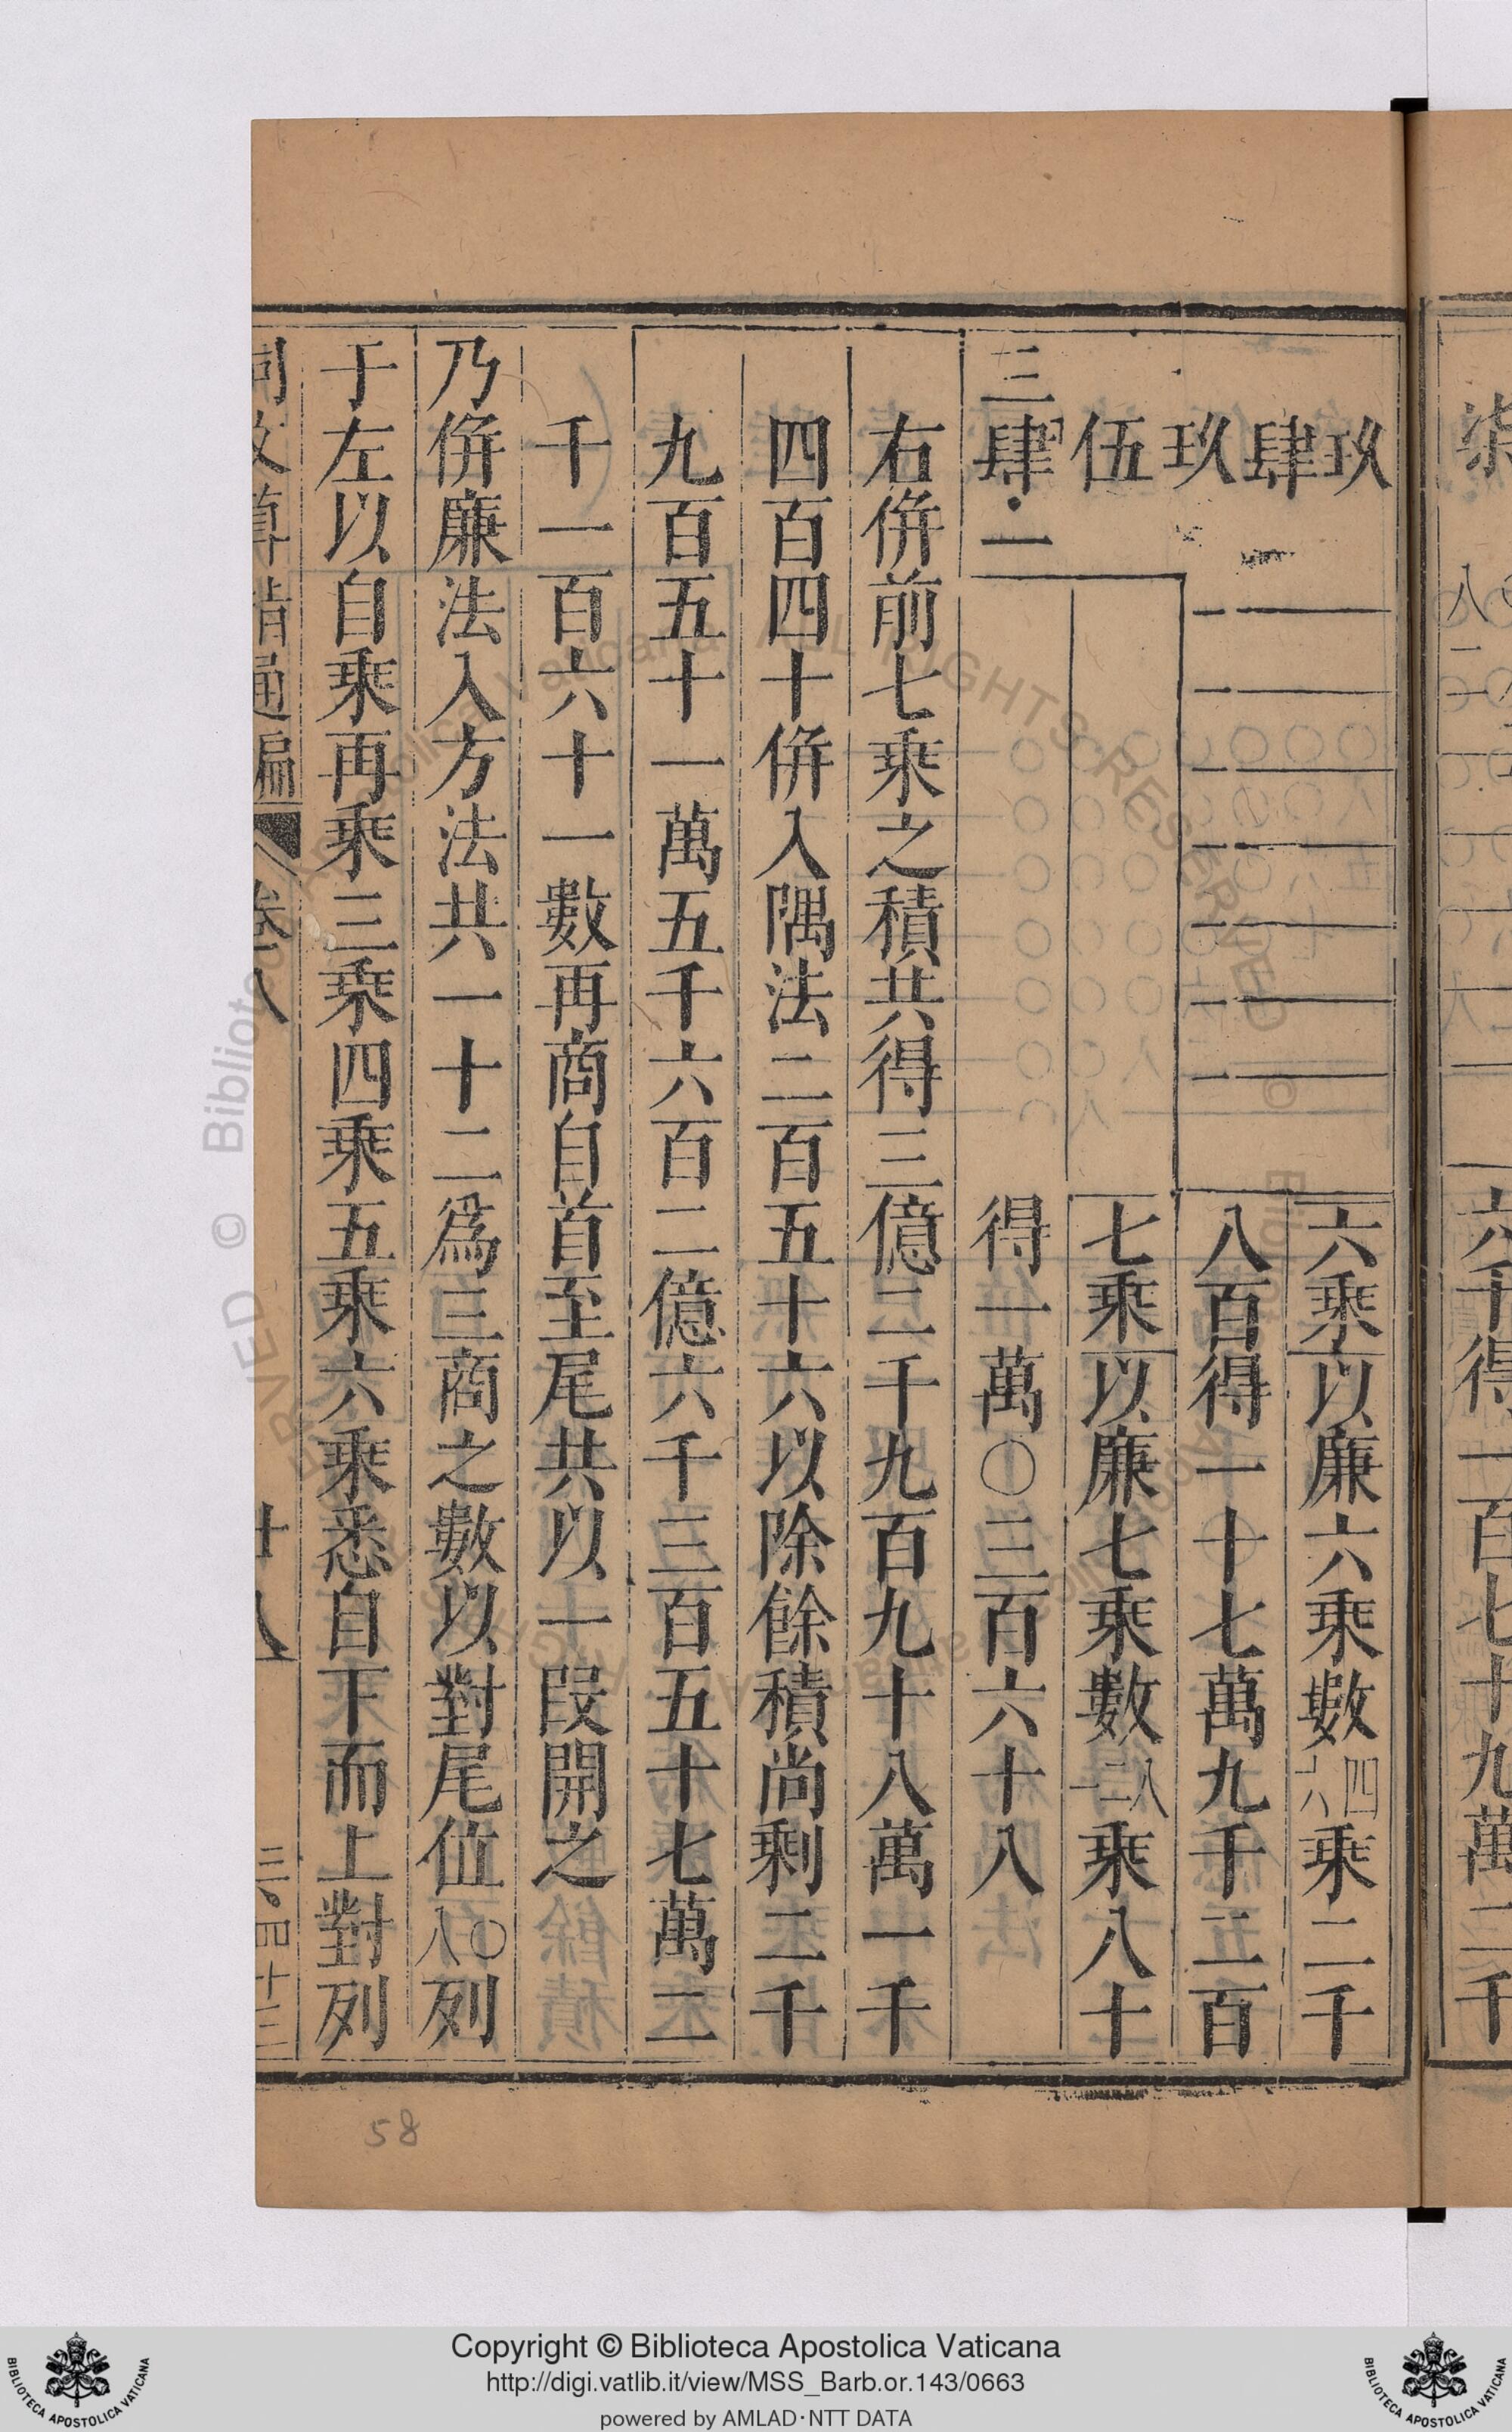 六乘以廉六乘數四六乘二千
玖
八百得一十七萬九千二百
肆
玖
七乘以廉七乘數一二八乘八十
伍
三肆一
得一萬〇三百六十八
右併前七乘之積共得三億二千九百九十八萬一千
四百四十併入隅法二百五十六以除餘積尚剩二千
九百五十一萬五千六百二億六千三百五十七萬二
千一百六十一數再商自首至尾共以一段開之
乃併廉法入方法共一十二為三商之數以對尾位〇八列
于左以自乘再乘三乘四乘五乘六乘悉自下而上對列
同文算指通編 卷八 十八 三 四十三
58
Copyright © Biblioteca Apostolica Vaticana
http://digi.vatlib.it/view/MSS_Barb.or.143/0663
powered by AMLAD·NTT DATA